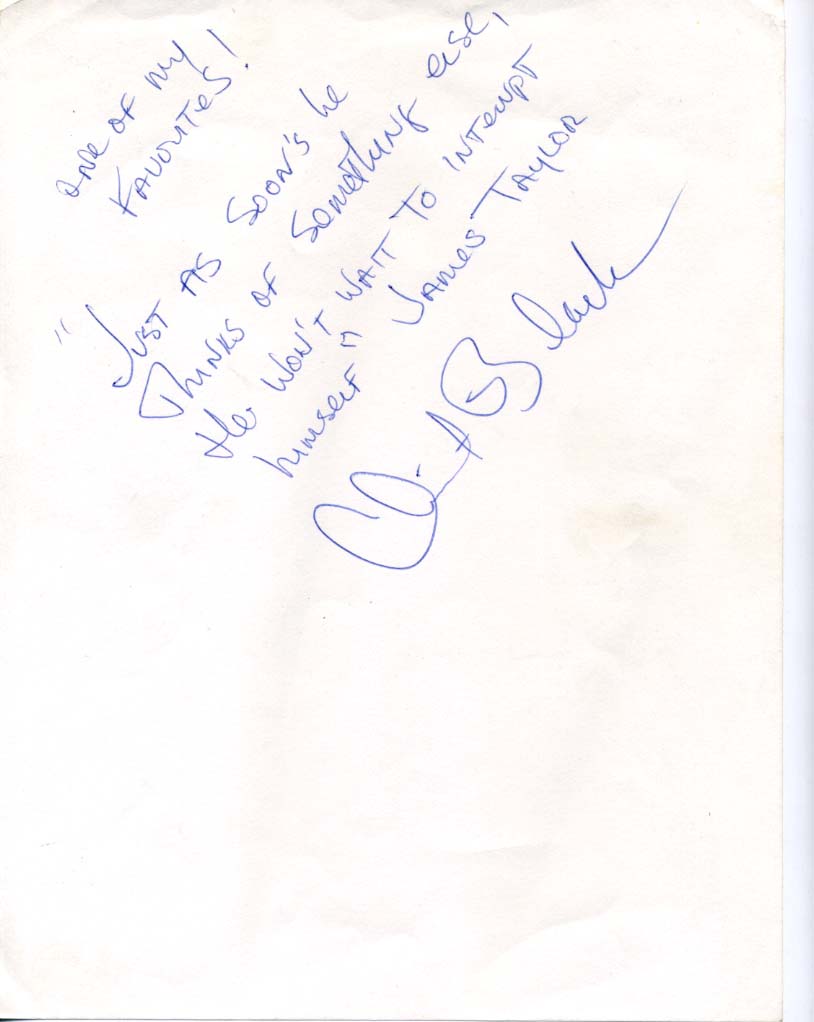 one of my
FAVORITES!
"JUST AS SOON'S he
THINKS OF SOMETHING else,
He WON'T WAIT TO INTERUPT
himself" JAMES TAYLOR
Clint Black